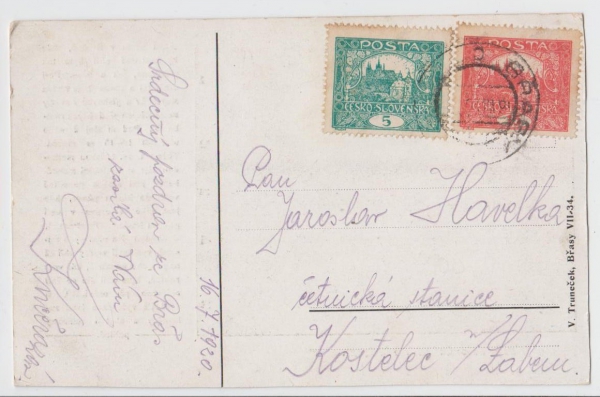 Srdečný pozdrav ze Břas
zasílá Vám
16.7.1920.
POSTA
ČESKO-SLOVENSKÁ
5
POSTA
BŘASY
Pan
Jaroslav Havelka
četnická stanice
Kostelec n/Labem.
V. Truneček, Břasy VII-34.